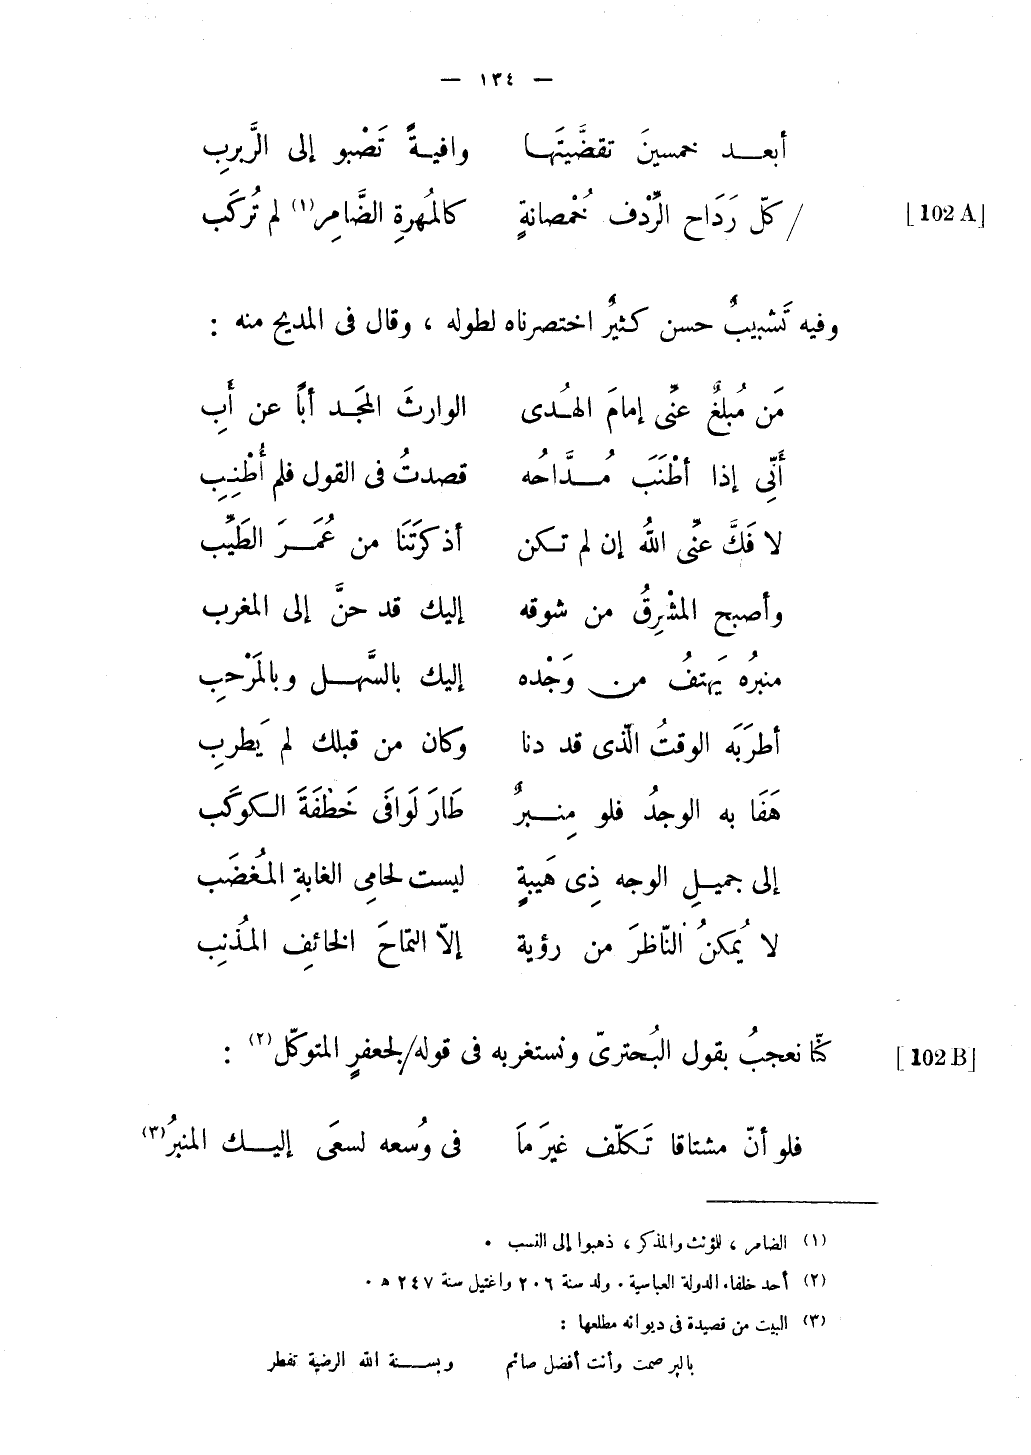 — ١٣٤ —
أبعــد خمسينَ تقضَّيتَهـا وافيـةً تَصْبو إلى الرَّبربِ
/ كلّ رَدَاح الرِّدْف خُمْصانةٍ كالمُهرةِ الضَّامِر(١) لم تُركَب [102 A]
وفيه تَشبيبٌ حسن كثيرٌ اختصرناه لطوله ، وقال فى المديح منه :
مَن مُبلغٌ عنِّى إمامَ الهُـدى الوارثَ المجَـد أبًا عن أَبِ
أَنِّى إذا أطْنَبَ مُــدَّاحُه قصدتُ فى القول فلم أُطْنِبِ
لا فَكَّ عنِّى اللهُ إن لم تـكن أذكرَتَنَا من عُمَـرَ الطَيِّب
وأصبح المشْرِقُ من شوقه إليك قد حنَّ إلى المغرب
منبرُه يَهتفُ من وَجْده إليك بالسَّهـل وبالمَرْحبِ
أطربَه الوقتُ الّذى قد دنا وكان من قبلك لم يَطربِ
هَفَا به الوجدُ فلو مِنــبرٌ طارَ لَوافَى خَطْفَةَ الـكوكَب
إلى جميـلِ الوجه ذِى هَيبةٍ ليست لحامِى الغابةِ المُغضَب
لا يُمكنُ النّاظرَ من رؤية إلاّ التماحَ الخائفِ المُذنِب
كنّا نعجبُ بقول البُحترىّ ونستغربه فى قوله/لجعفرٍ المتوكّل(٢) : [102 B]
فلو أنّ مشتاقا تَكلّف غيرَ مَا فى وُسعه لسعَى إليــك المنبرُ(٣)
(١) الضامر ، للمؤنث والمذكر ، ذهبوا إلى النسب .
(٢) أحد خلفاء الدولة العباسية . ولد سنة ٢٠٦ واغتيل سنة ٢٤٧ ه .
(٣) البيت من قصيدة فى ديوانه مطلعها :
بالبر صمت وأنت أفضل صائم وبســنة الله الرضية تفطر